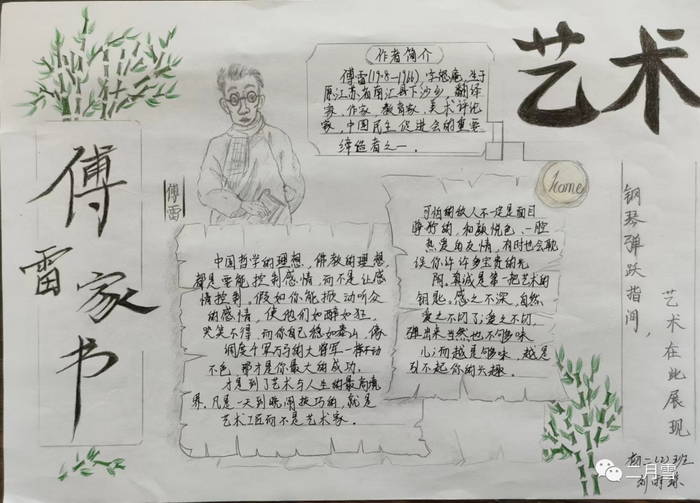 傅雷家书
艺术
作者简介
傅雷(1908—1966),字怒庵,生于
原江苏省南汇县下沙乡,翻译
家,作家,教育家,美术评论
家,中国民主促进会的重要
缔造者之一。
傅雷
home
中国哲学的理想,佛教的理想,
都是要能控制感情,而不是让感
情控制。假如你能掀动听众
的感情,使他们如醉如狂,
哭笑不得,而你自己稳如泰山,像
调度千军万马的大将军一样不动
不色,那才是你最大的成功,
才是到了艺术与人生的最高境
界。凡是一天到晚闹技巧的,就是
艺术工匠而不是艺术家。
可怕的敌人不一定是面目
狰狞的,和颜悦色、一腔
热爱的友情,有时也会耽
误你许许多多宝贵的光
阴。真诚是第一把艺术的
钥匙。感之不深,自然
爱之不切了;爱之不切,
弹出来当然也不够味
儿;而越是不够味,越是
引不起你的兴趣。
钢琴弹跃指间,
艺术在此展现
初一(2)班
二月雪